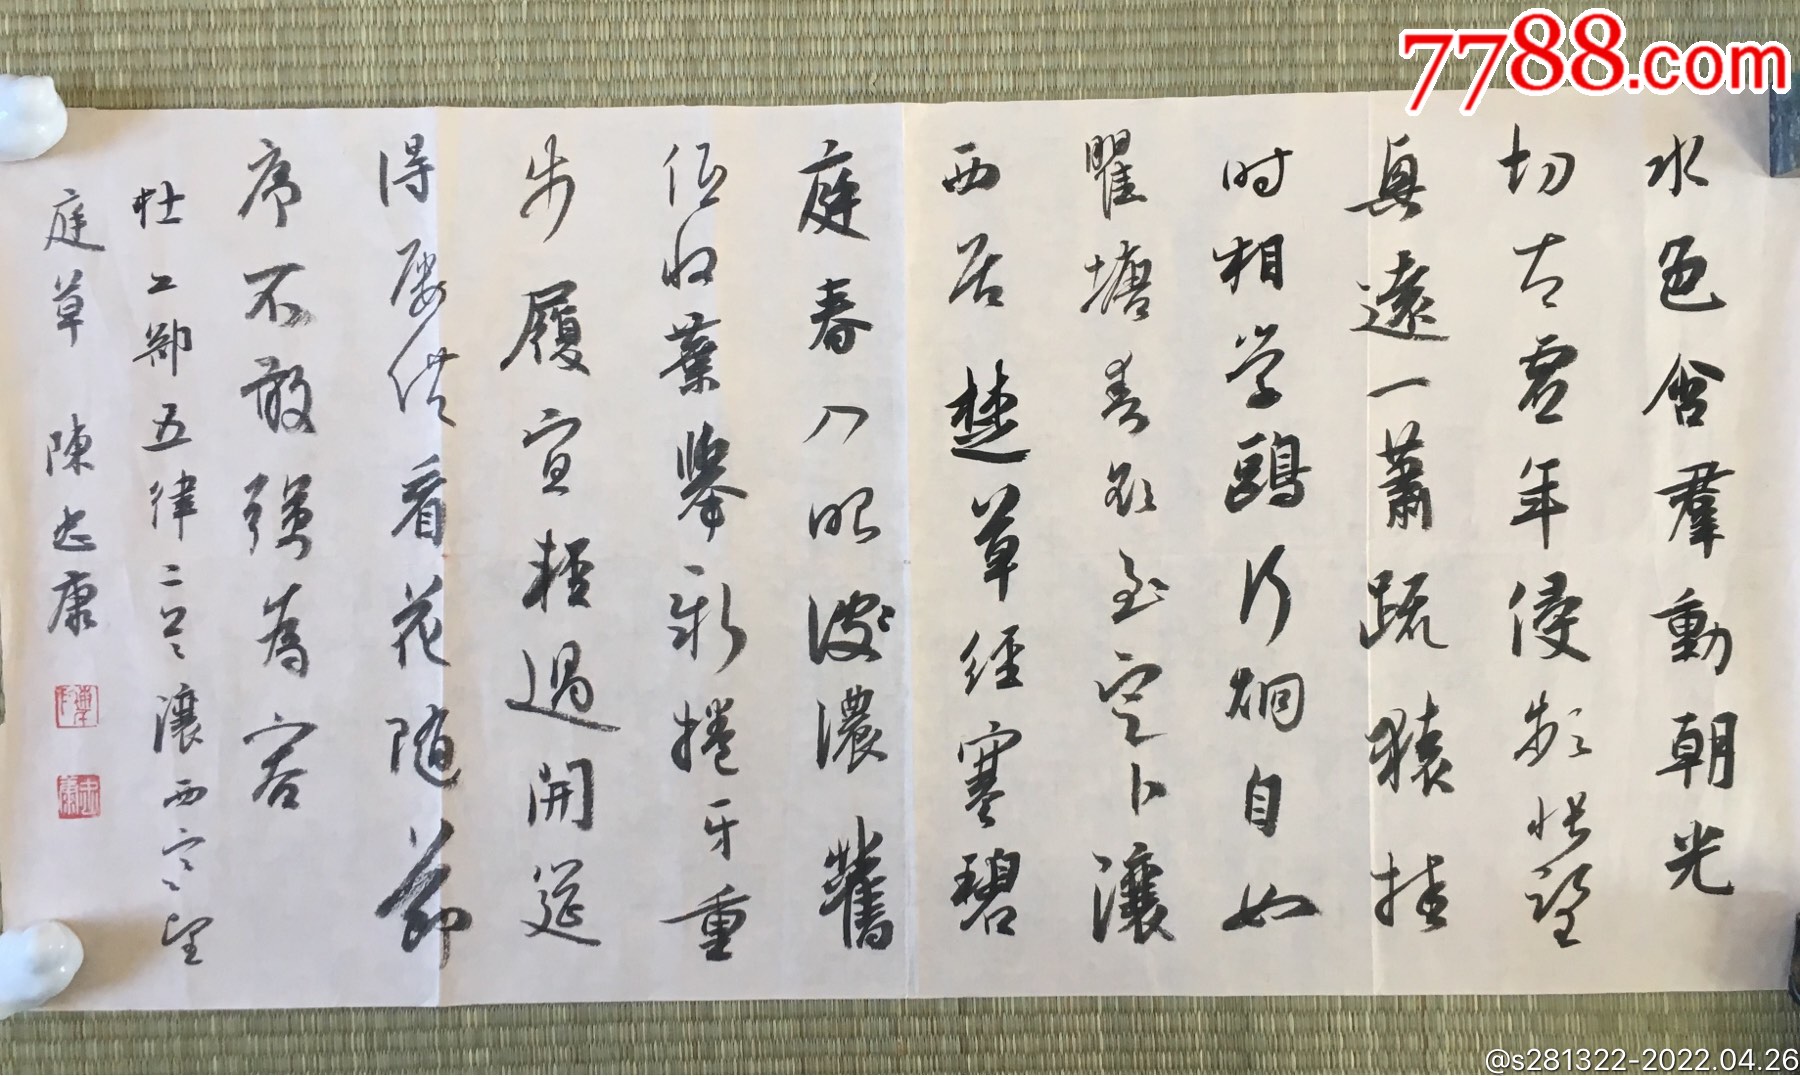 水色含羣動朝光
切太虛年侵頻悵望
興遠一蕭疏猿挂
时相學鷗行炯自如
瞿塘春欲至定卜瀼
西居楚草經寒碧
庭春入眼波濃舊
低收葉舉新捲牙重
步履宜輕過開筵
得屢供看花隨節
序不敢強為容
杜工部五律二首瀼西寒望
庭草 陳志康
7788.com
@s281322-2022.04.26